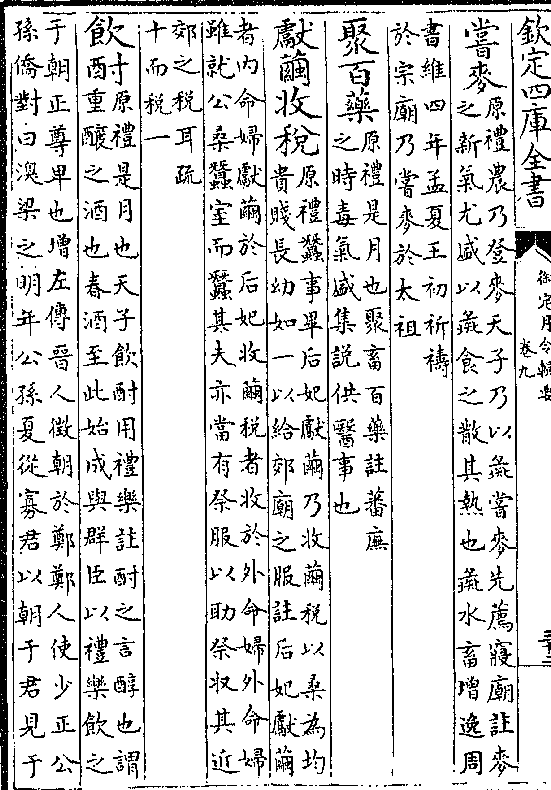 欽定四庫全書
卷九
嘗麥原禮農乃登麥天子乃以彘嘗麥先薦寢廟註麥
之新氣尤盛以彘食之散其熱也彘水畜增逸周
書維四年孟夏王初祈禱
於宗廟乃嘗麥於太祖
聚百藥原禮是月也聚畜百藥註蕃廡
之時毒氣盛集說供醫事也
獻繭收稅原禮蠶事畢后妃獻繭乃收繭稅以桑為均
貴賤長幼如一以給郊廟之服註后妃獻繭
者內命婦獻繭於后妃收繭稅者收於外命婦外命婦
雖就公桑蠶室而蠶其夫亦當有祭服以助祭收其近
郊之稅耳疏
十而稅一
飲酎原禮是月也天子飲酎用禮樂註酎之言醇也謂
重釀之酒也春酒至此始成與群臣以禮樂飲之
于朝正尊卑也增左傳晉人徵朝於鄭鄭人使少正公
孫僑對曰溴梁之明年公孫夏從寡君以朝于君見于